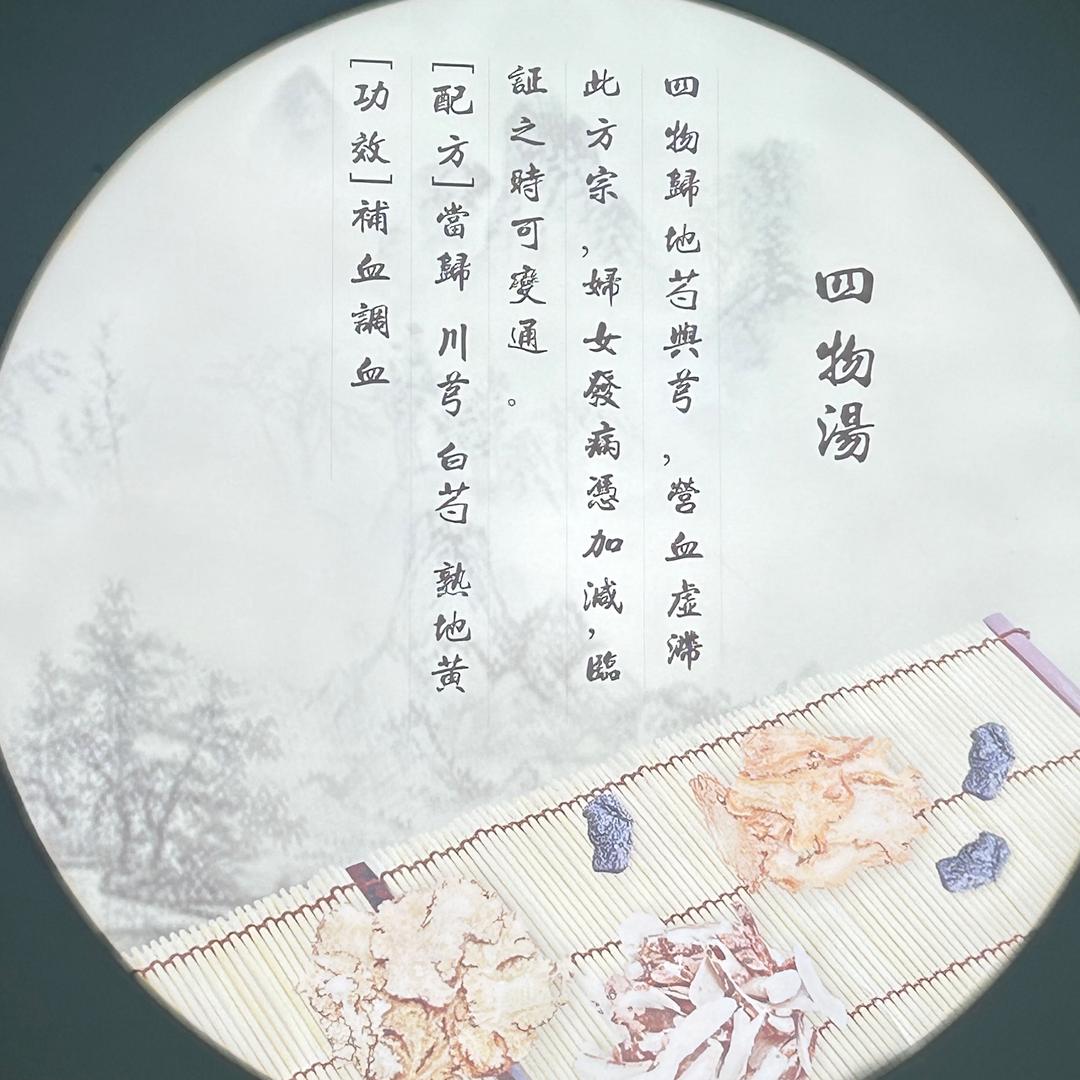 四物湯
四物歸地芍與芎，營血虛滯
此方宗，婦女發病憑加減，臨
証之時可變通。
[配方]當歸 川芎 白芍 熟地黃
[功效]補血調血